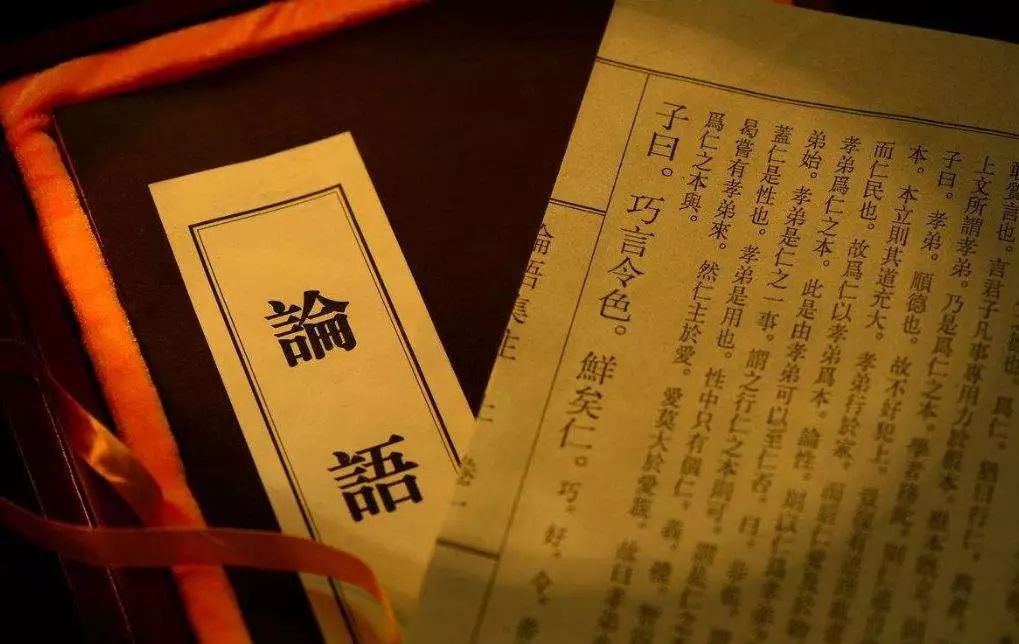 論語
爲仁。猶曰行仁。
質言也。言君子凡事專用力於根本。根本既立。
上文所謂孝弟。乃是爲仁之本。學者務此。則仁道
子曰。孝弟。順德也。故不好犯上。豈復有逆理亂
本。本立則其道充大。孝弟行於家。而後仁愛及於物
而仁民也。故爲仁以孝弟爲本。論性。則以仁爲孝弟之
孝弟爲仁之本。此是由孝弟可以至仁否。曰。非也。謂
弟始。孝弟是仁之一事。謂之行仁之本則可。謂是仁之
蓋仁是性也。孝弟是用也。性中只有個仁。義。禮。智
曷嘗有孝弟來。然仁主於愛。愛莫大於愛親。故曰孝弟
爲仁之本與。
子曰。巧言令色。鮮矣仁。巧。好。令。善
論語集注 卷一